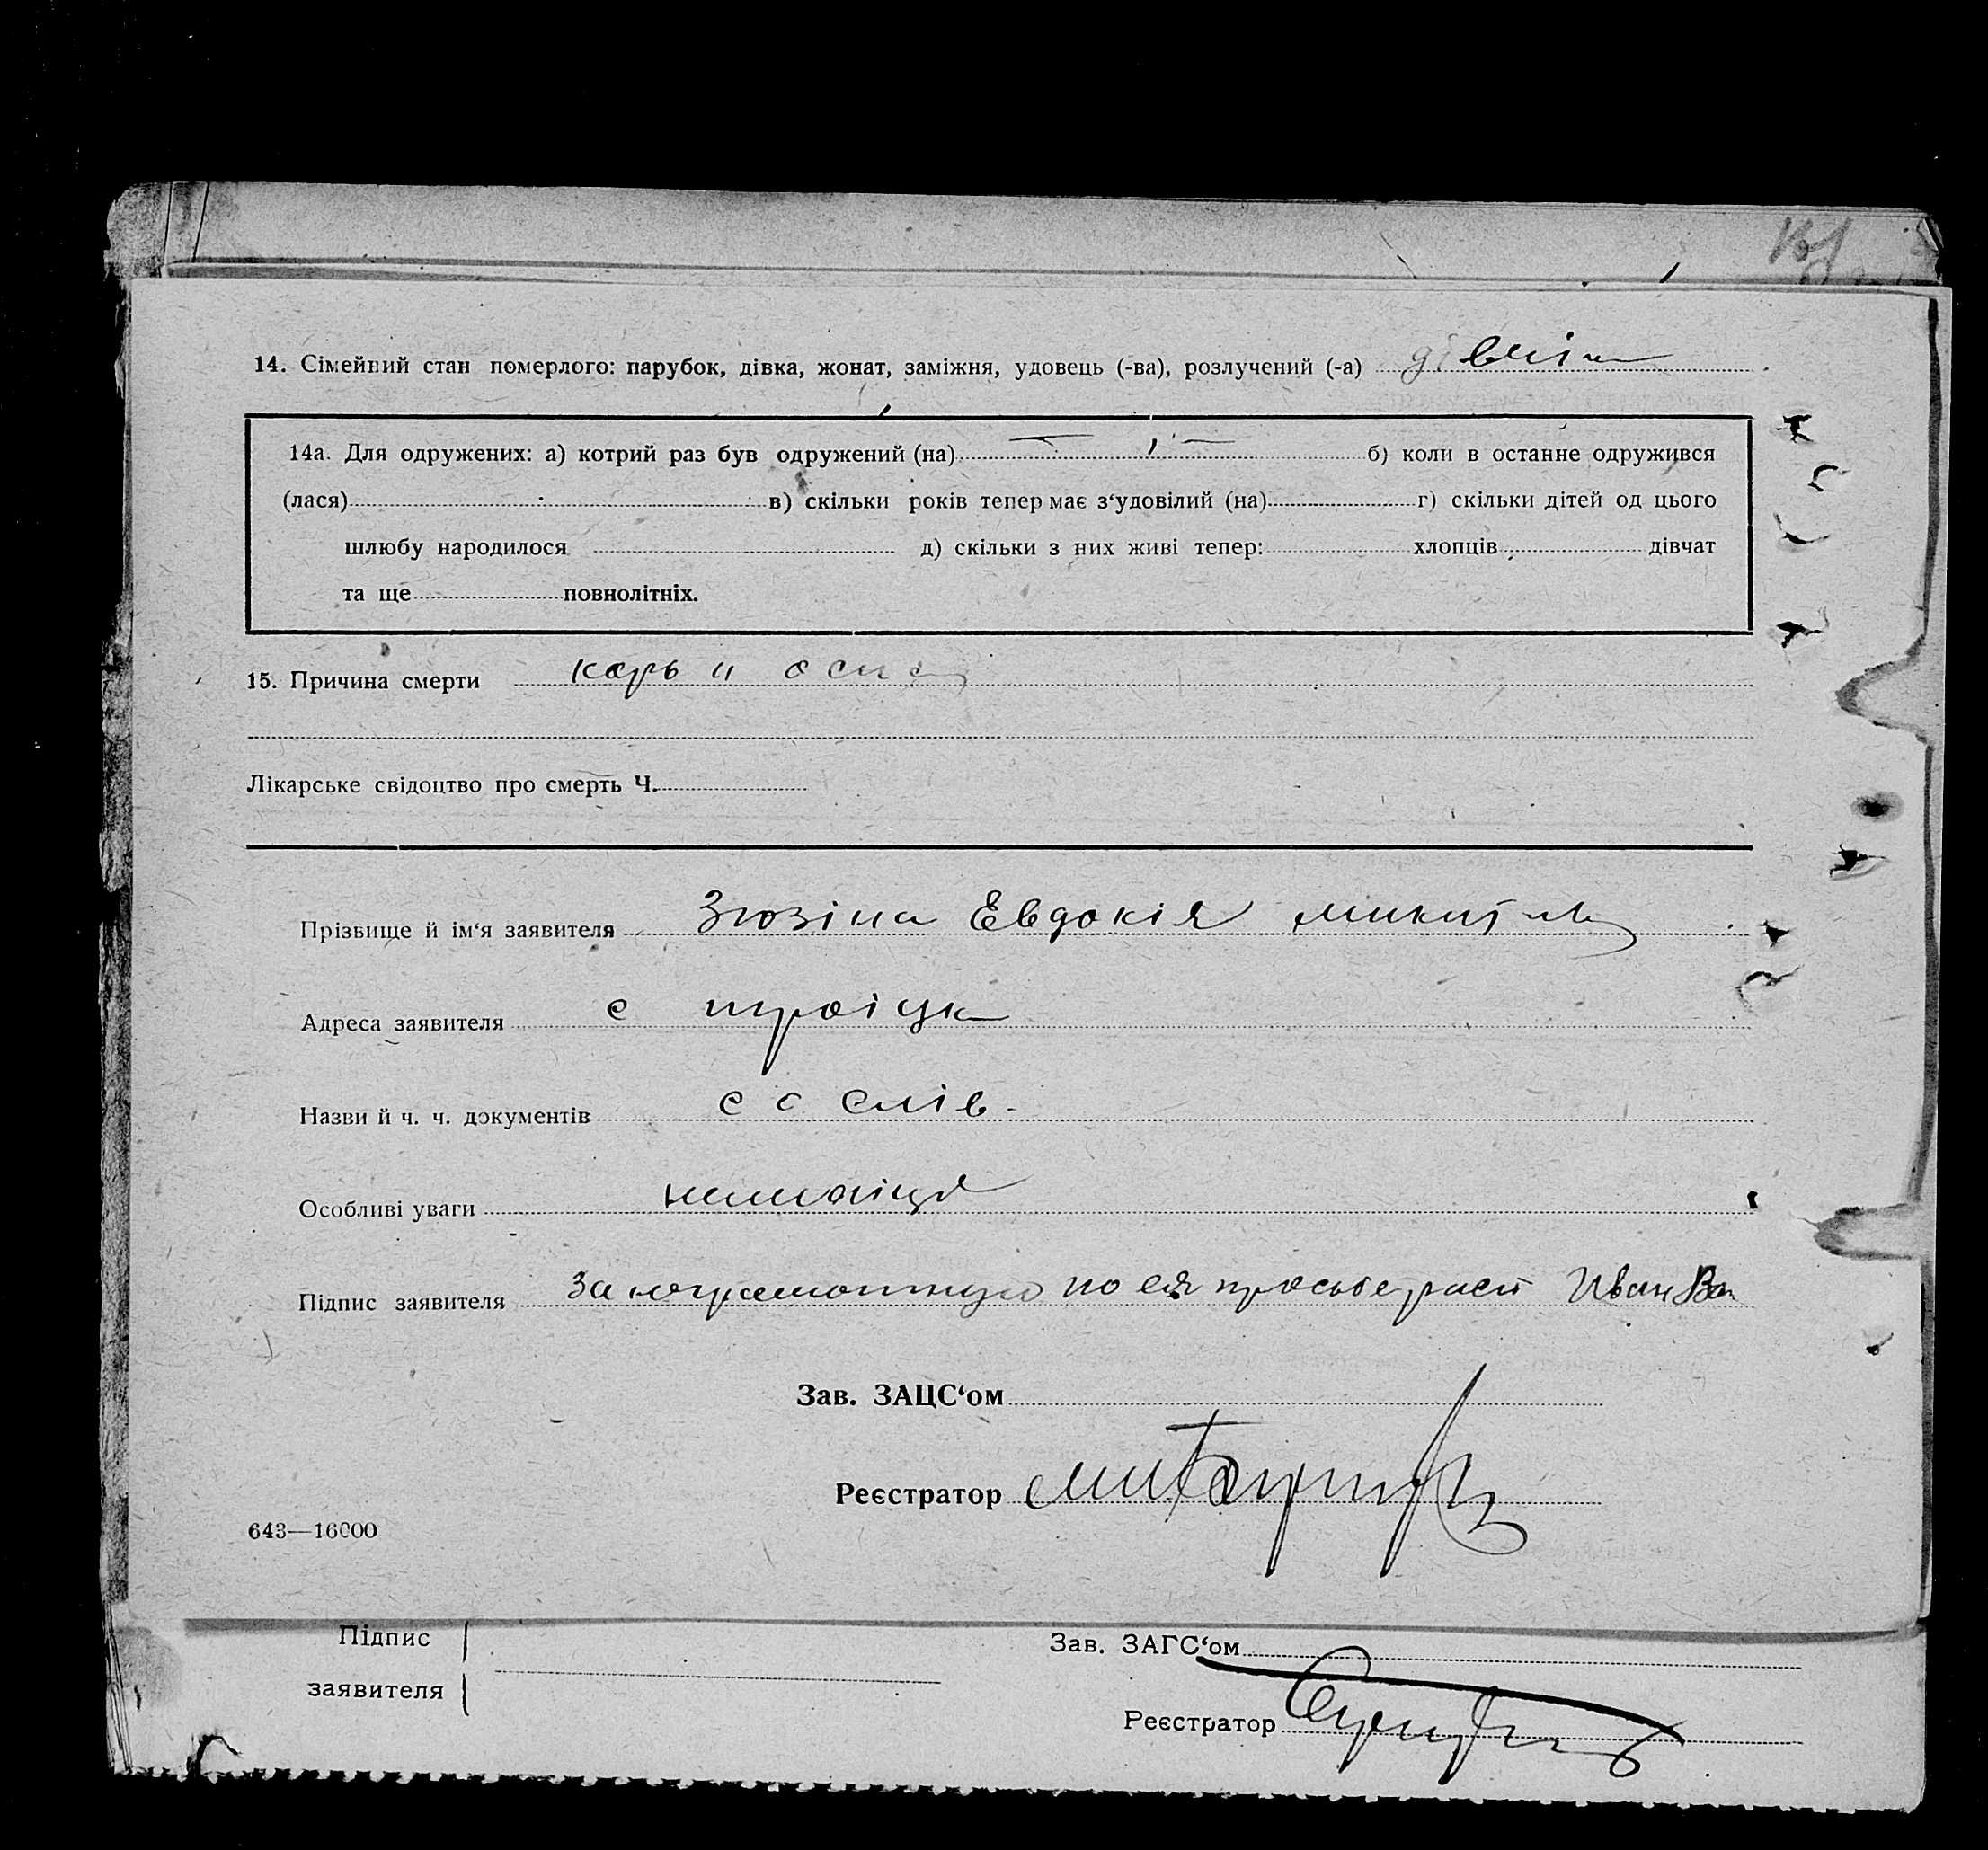 14. Сімейний стан померлого: парубок, дівка, жонат, заміжня, удовець (-ва), розлучений (-а)
14а. Для одружених: а) котрий раз був одружений (на) б) коли в останне одружився
(лася) в) скільки років тепер має з‘удовілий (на) г) скільки дітей од цього
шлюбу народилося д) скільки з них живі тепер: хлопців дівчат
та ще повнолітніх.
15. Причина смерти корь и
Лікарське свідоцтво про смерть Ч.
Прізвище й ім‘я заявителя Зюзіна Евдокія
Адреса заявителя с троіцк
Назви й ч. ч. документів с с слів
Особливі уваги
Підпис заявителя За по ея просьбе расп Иван
Зав. ЗАЦС‘ом
Реєстратор
643—16000
Підпис
заявителя
Зав. ЗАГС‘ом
Реєстратор